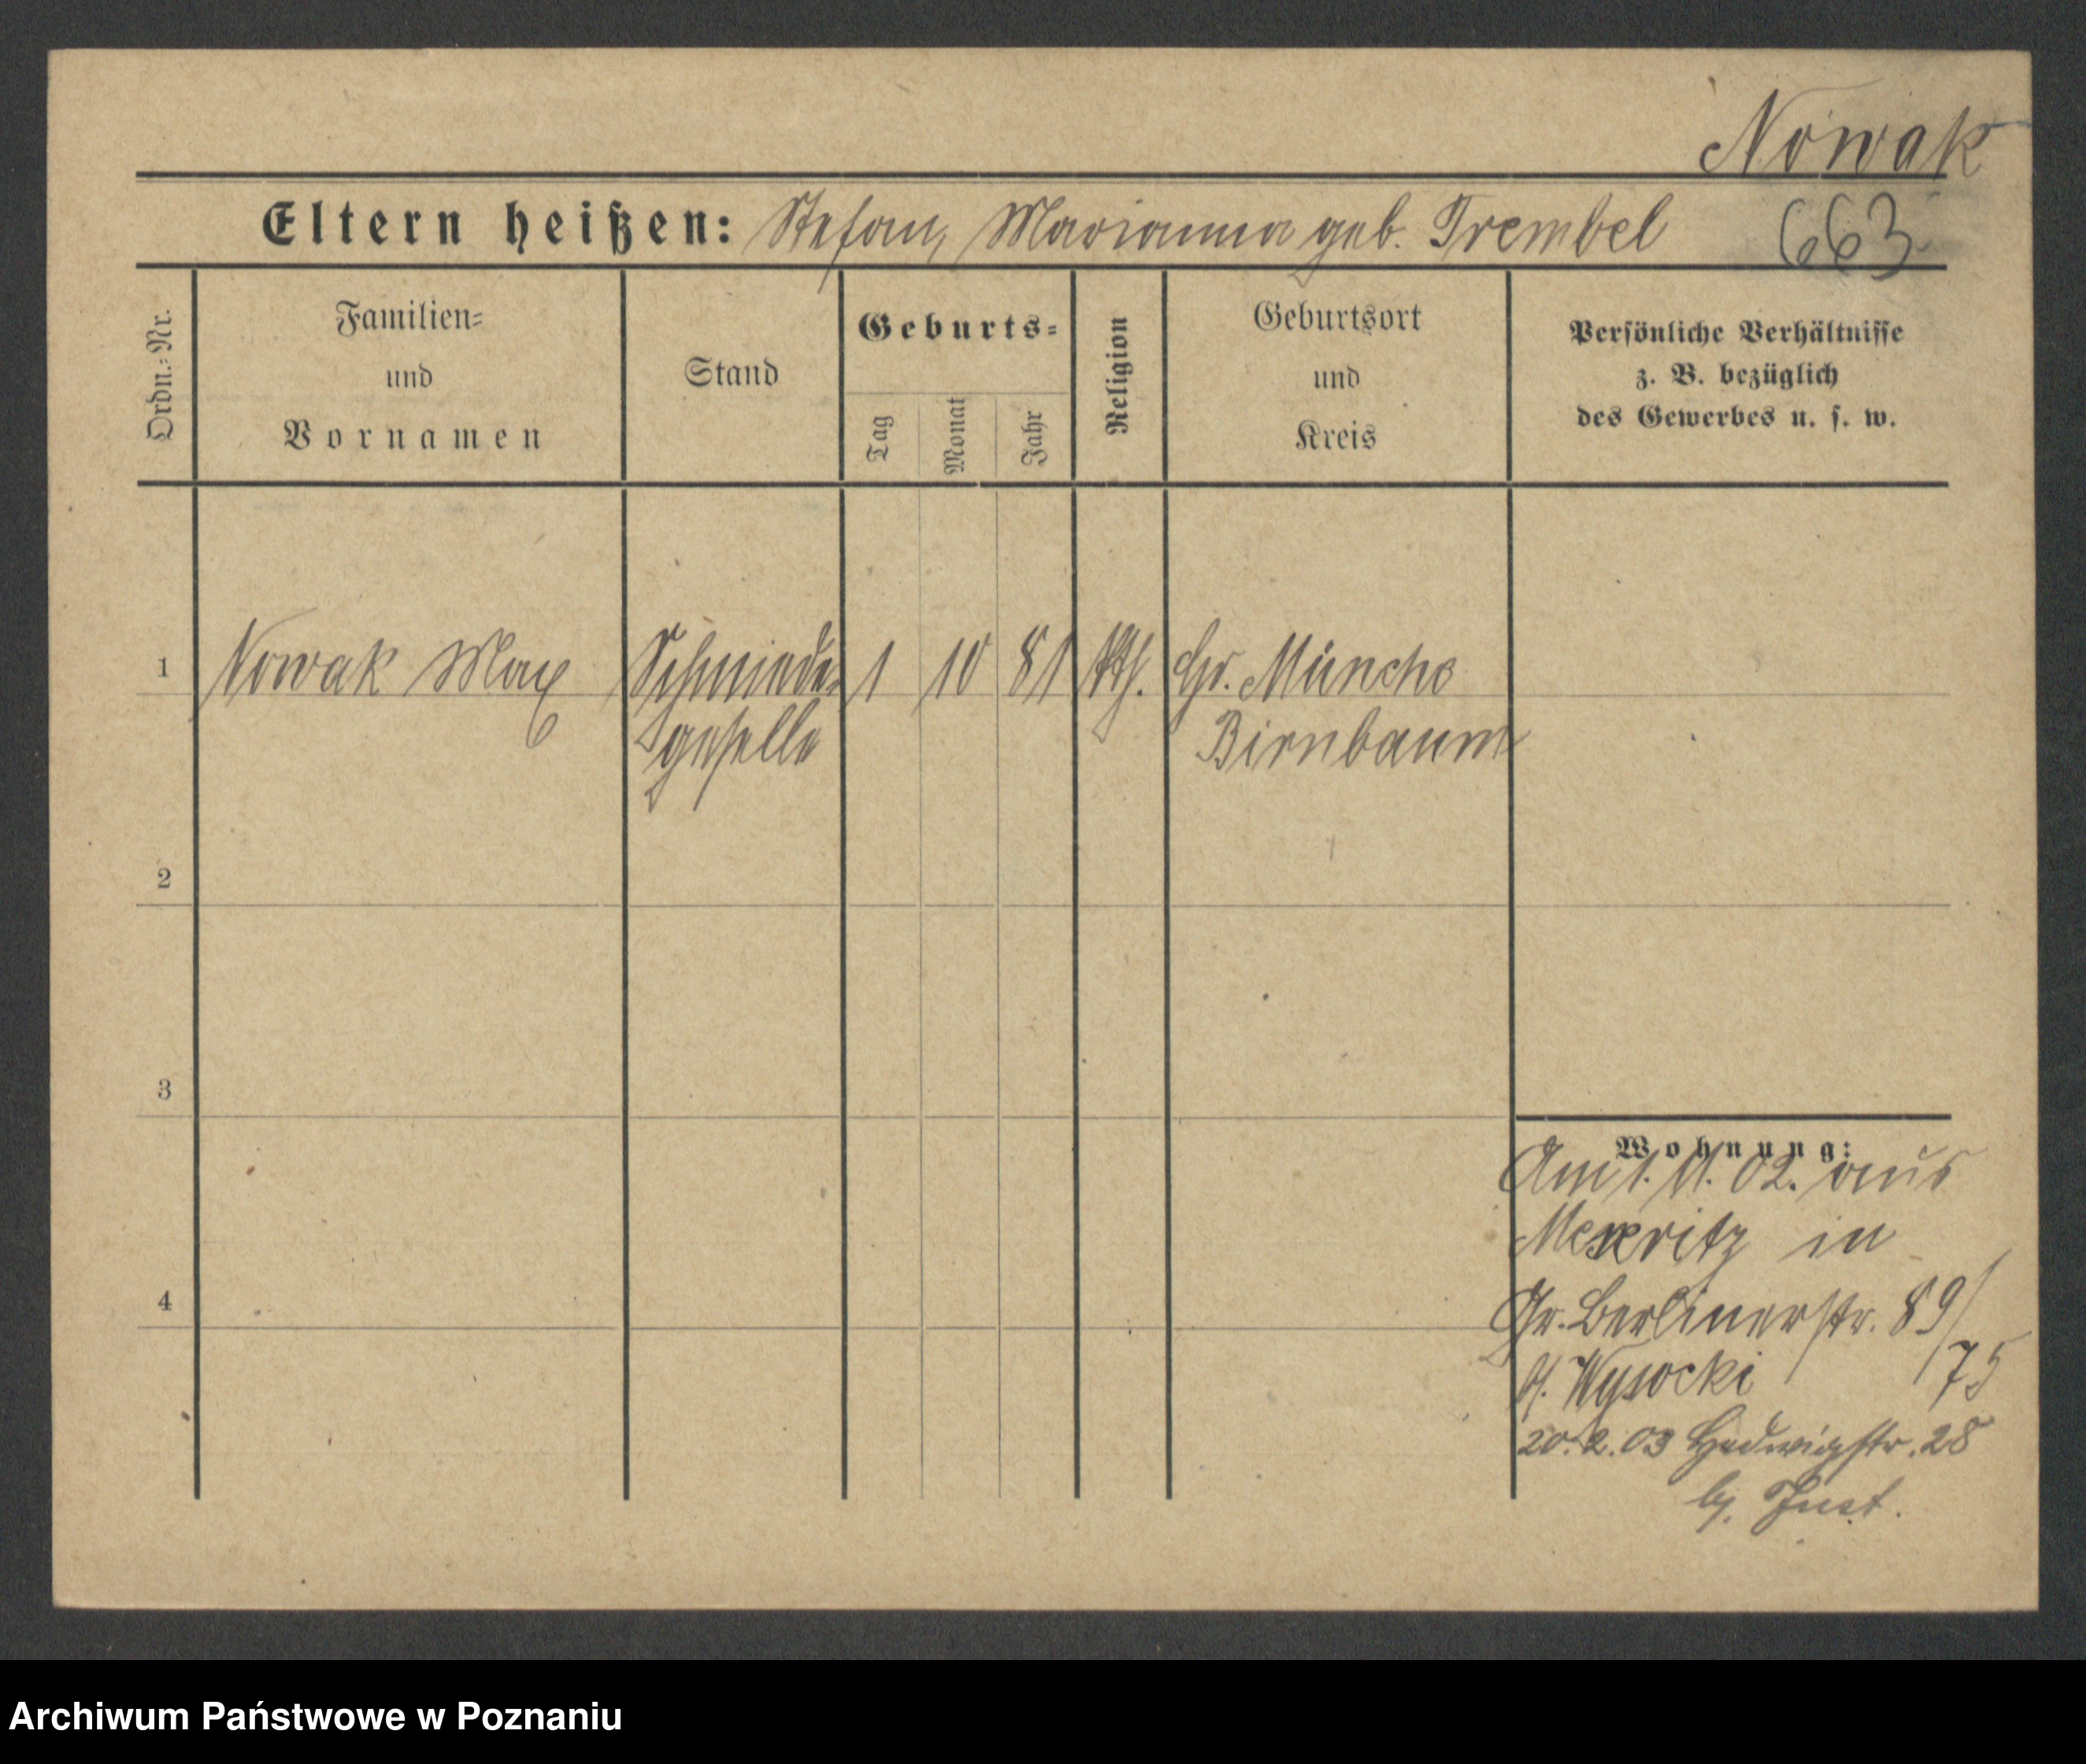 Nowak
Eltern heißen: Stefan, Marianna geb. Trembel 663
Ordn.-Nr.
Familien-
und
Vornamen
Stand
Geburts-
Tag
Monat
Jahr
Religion
Geburtsort
und
Kreis
Persönliche Verhältnisse
z. B. bezüglich
des Gewerbes u. s. w.
1 Nowak Max Schmiede- 1 10 81 kth. Gr. Münche
geselle Birnbaum
2
3
4
Wohnung:
Am 1. 11. 02. aus
Meseritz in
Gr. Berlinerstr. 89/
b/. Wysocki /75
20.2.03 Hedwigstr. 28
b/. Just.
Archiwum Państwowe w Poznaniu